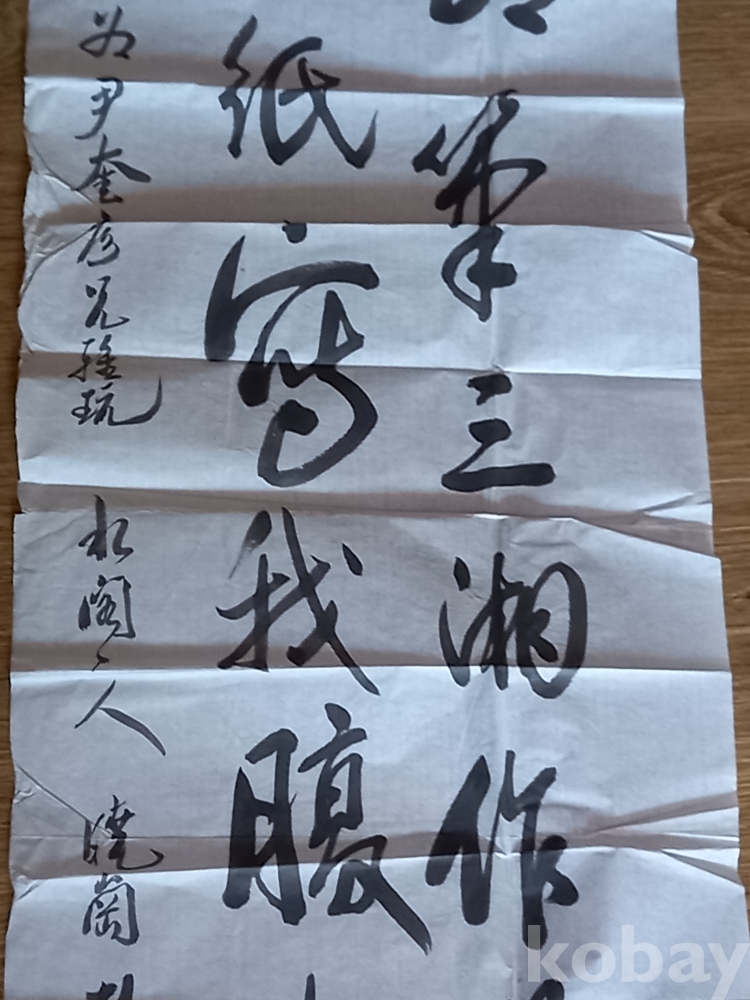 筆三湘作
紙寫我腹
為尹奎彦兄雅玩 水閣〻人 曉崗
kobay